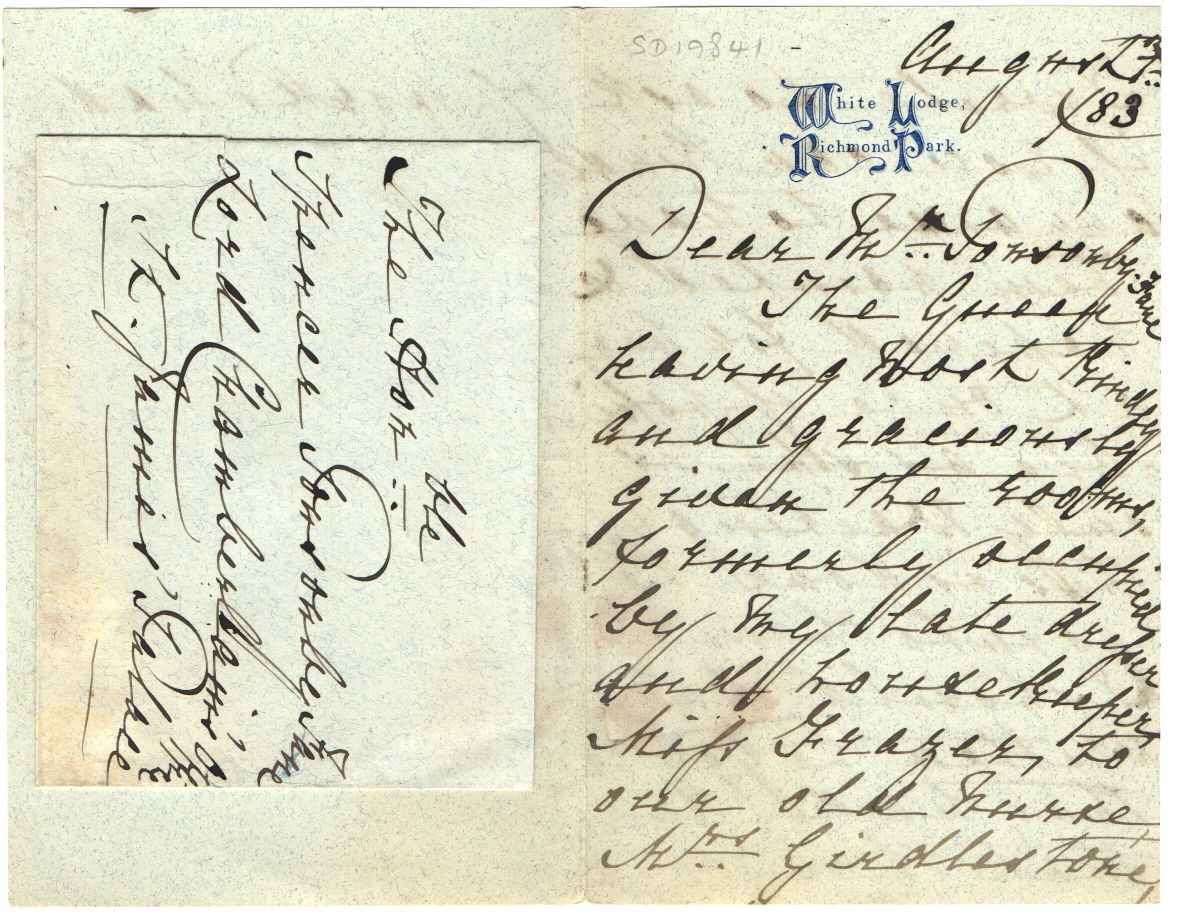 The Hon: ble
Spencer Ponsonby Fane
Lord Chamberlain's Office
St. James's Palace
SD19841
August
/83
White Lodge,
Richmond Park.
Dear Mr: Ponsonby-Fane
The Queen
having most kindly
and graciously
given the rooms,
formerly occupied
by my late dresser
and housekeeper,
Miss Frazer, to
our old nurse
Mrs: Girdlestone,